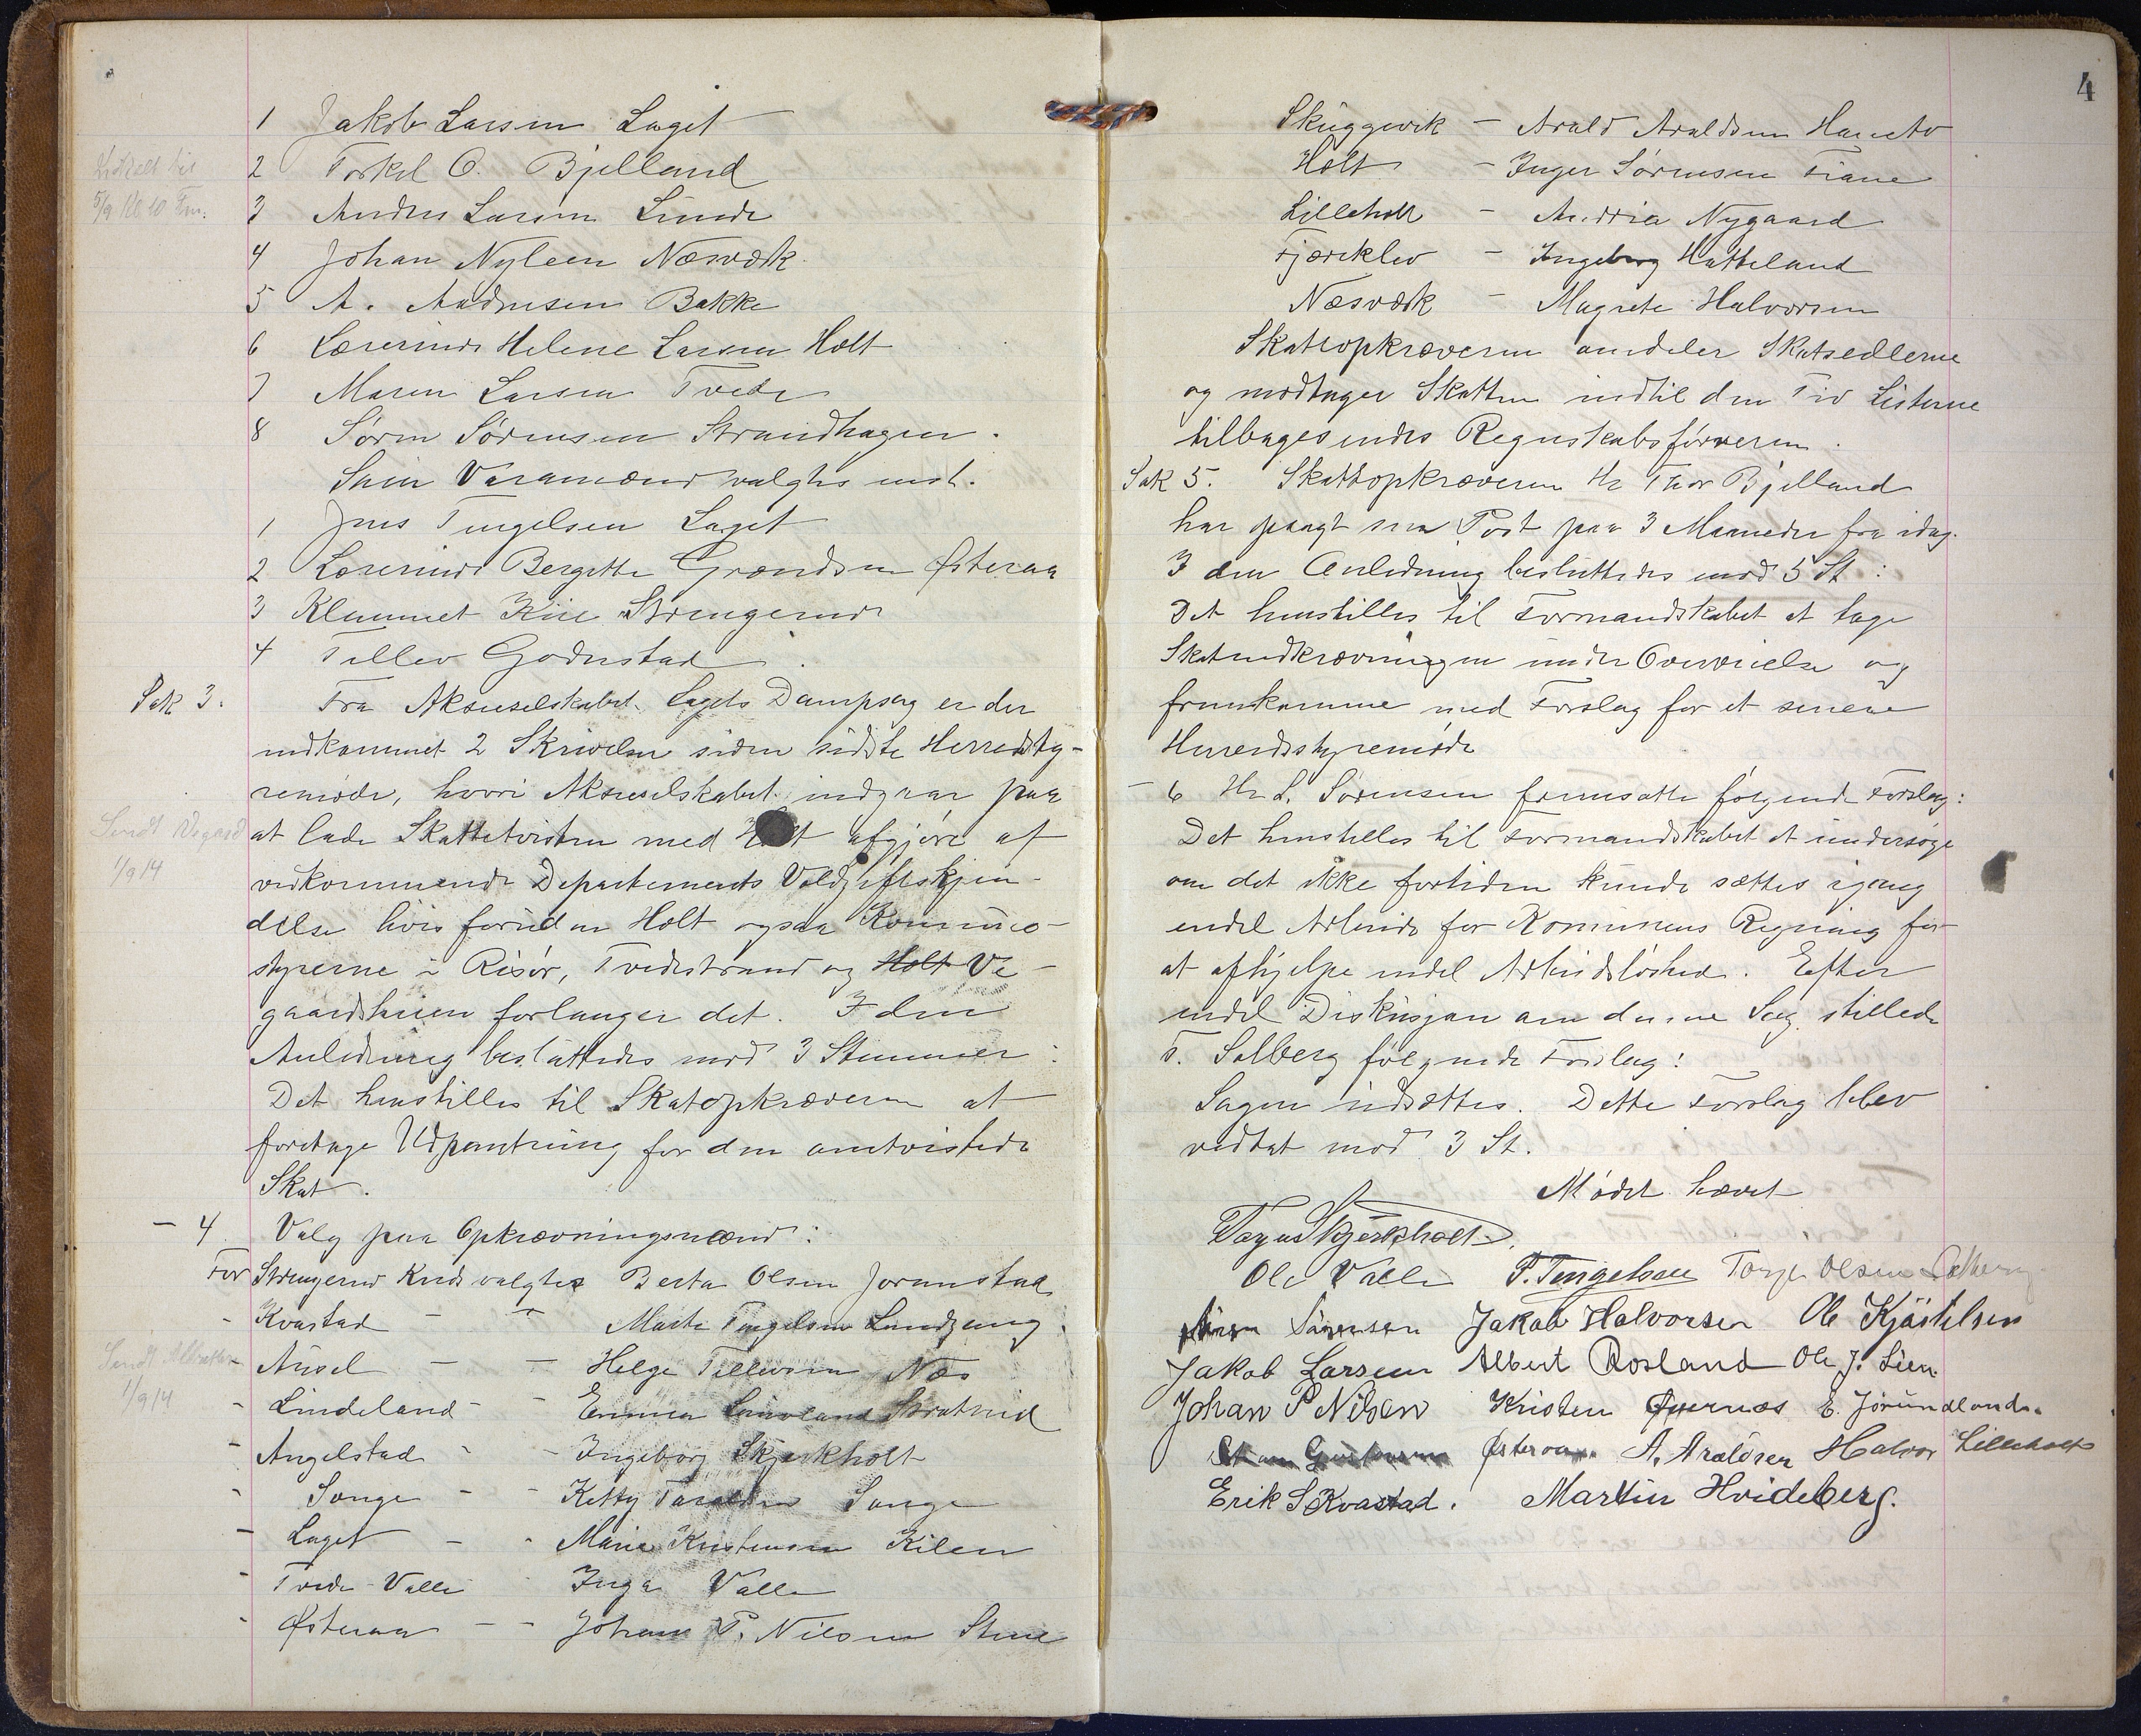 1 Jakob Larsen Laget
2 Torkel O. Bjelland
3 Anders Larsen Linde
4 Johan Nyleen Næsværk
5 A. Andersen Bakke
6 Lærerinde Helene Larsen Holt
7 Maren Larsen Tvede
8 Sørn Sørensen Strandhagen.
Som Varamænd valgtes enst.
1 Jens Tengelsen Laget
2 Lærerinde Bergitte Grændsen Østeraa
3 Klemmet Kile Strengerud
4 Tellev Goderstad.
Indkaldt til
5/9 Kl 10 Fm.
Sak 3. Fra Aksieselskabet Lagets Dampsag er der
indkommet 2 Skrivelser siden sidste Herredsty-
remøde, hvori Aksieselskabet indgaar paa
at lade Skattetvisten med Holt afgjøre af
vedkommende Departements Voldgiftskjen-
delse hvis foruden Holt ogsaa Kommune-
styrerne i Risør, Tvedestrand og Holt Ve-
gaardsheien forlanger det. I den
Anledning besluttedes mod 3 Stemmer:
Det henstilles til Skatopkræveren at
foretage Udpantning for den omtvistede
Skat.
Sendt
1/9 14
- 4. Valg paa Opkrævningsmænd:
For Strengerud Kreds valgtes Berta Olsen Jorunstad
- Kvastad - - Marte Tengelsen Lundzæng
- Ausel - - Helge Tellevsen Næs
- Lindeland - - Emma Lindland Skratreid
- Angelstad - - Ingeborg Skjerkholt
- Songe - - Ketty Taraldsen Songe
- Laget - - Marie Kristensen Kilen
- Tvede-Valle - Inga Valle
- Østeraa - - Johan P. Nilsen Stue
Sendt
1/9 14
4
Skuggevik - Arald Araldsen
Holt - Inger Sørensen Fiane
Lilleholt - Andrea Nygaard
Fjæreklev - Ingeborg Hatteland
Næsværk - Magrete Halvorsen
Skatteopkræveren omdeler Skatsedlerne
og modtager Skatten indtil den Tid Listerne
tilbagesendes Regnskabsføreren.
Sak 5. Skatteopkræveren Hr Thor Bjelland
har opsagt sin Post paa 3 Maaneder fra idag.
I den Anledning besluttedes mod 5 St:
Det henstilles til Formandskabet at tage
Skatindkrævningen under Overveielse og
fremkomme med Forslag for et senere
Herredsstyremøde
- 6 Hr L. Sørensen fremsatte følgende Forslag:
Det henstilles til Formandskabet at undersøge
om det ikke fortiden kunde sættes igang
endel Arbeide for Komunens Regning for
at afhjelpe endel Arbeidsløshed. Efter
endel Diskusjon om denne Sag stillede
T. Solberg følgende Forslag:
Sagen udsættes. Dette Forslag blev
vedtat mod 3 St.
Mødet hævet
Skjerkholt
Ole Valle P. Tengelsen Torje Olsen Solberg
Søren Sørensen Jakob Halvorsen Ole Kjøstelsen
Jakob Larsen Albert Rosland Ole J. Lien
Johan P Nilsen Kristen Qvernæs E. Jorundland.
Østeraa. A. Araldsen Halvor Lilleholt
Erik S Kvastad. Martin Hvideberg.